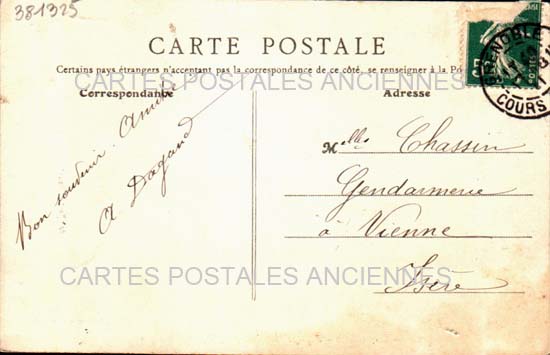 381325
CARTE POSTALE
Certains pays étrangers n'acceptent pas la correspondance de ce côté, se renseigner à la Po
CARTES POSTALES ANCIENNES
Correspondance
Adresse
Bon souvenir. Amitié
A Dagand
Melles Chassin
Gendarmerie
à Vienne
Isère
CARTES POSTALES ANCIENNES
GRENOBLE
COURS